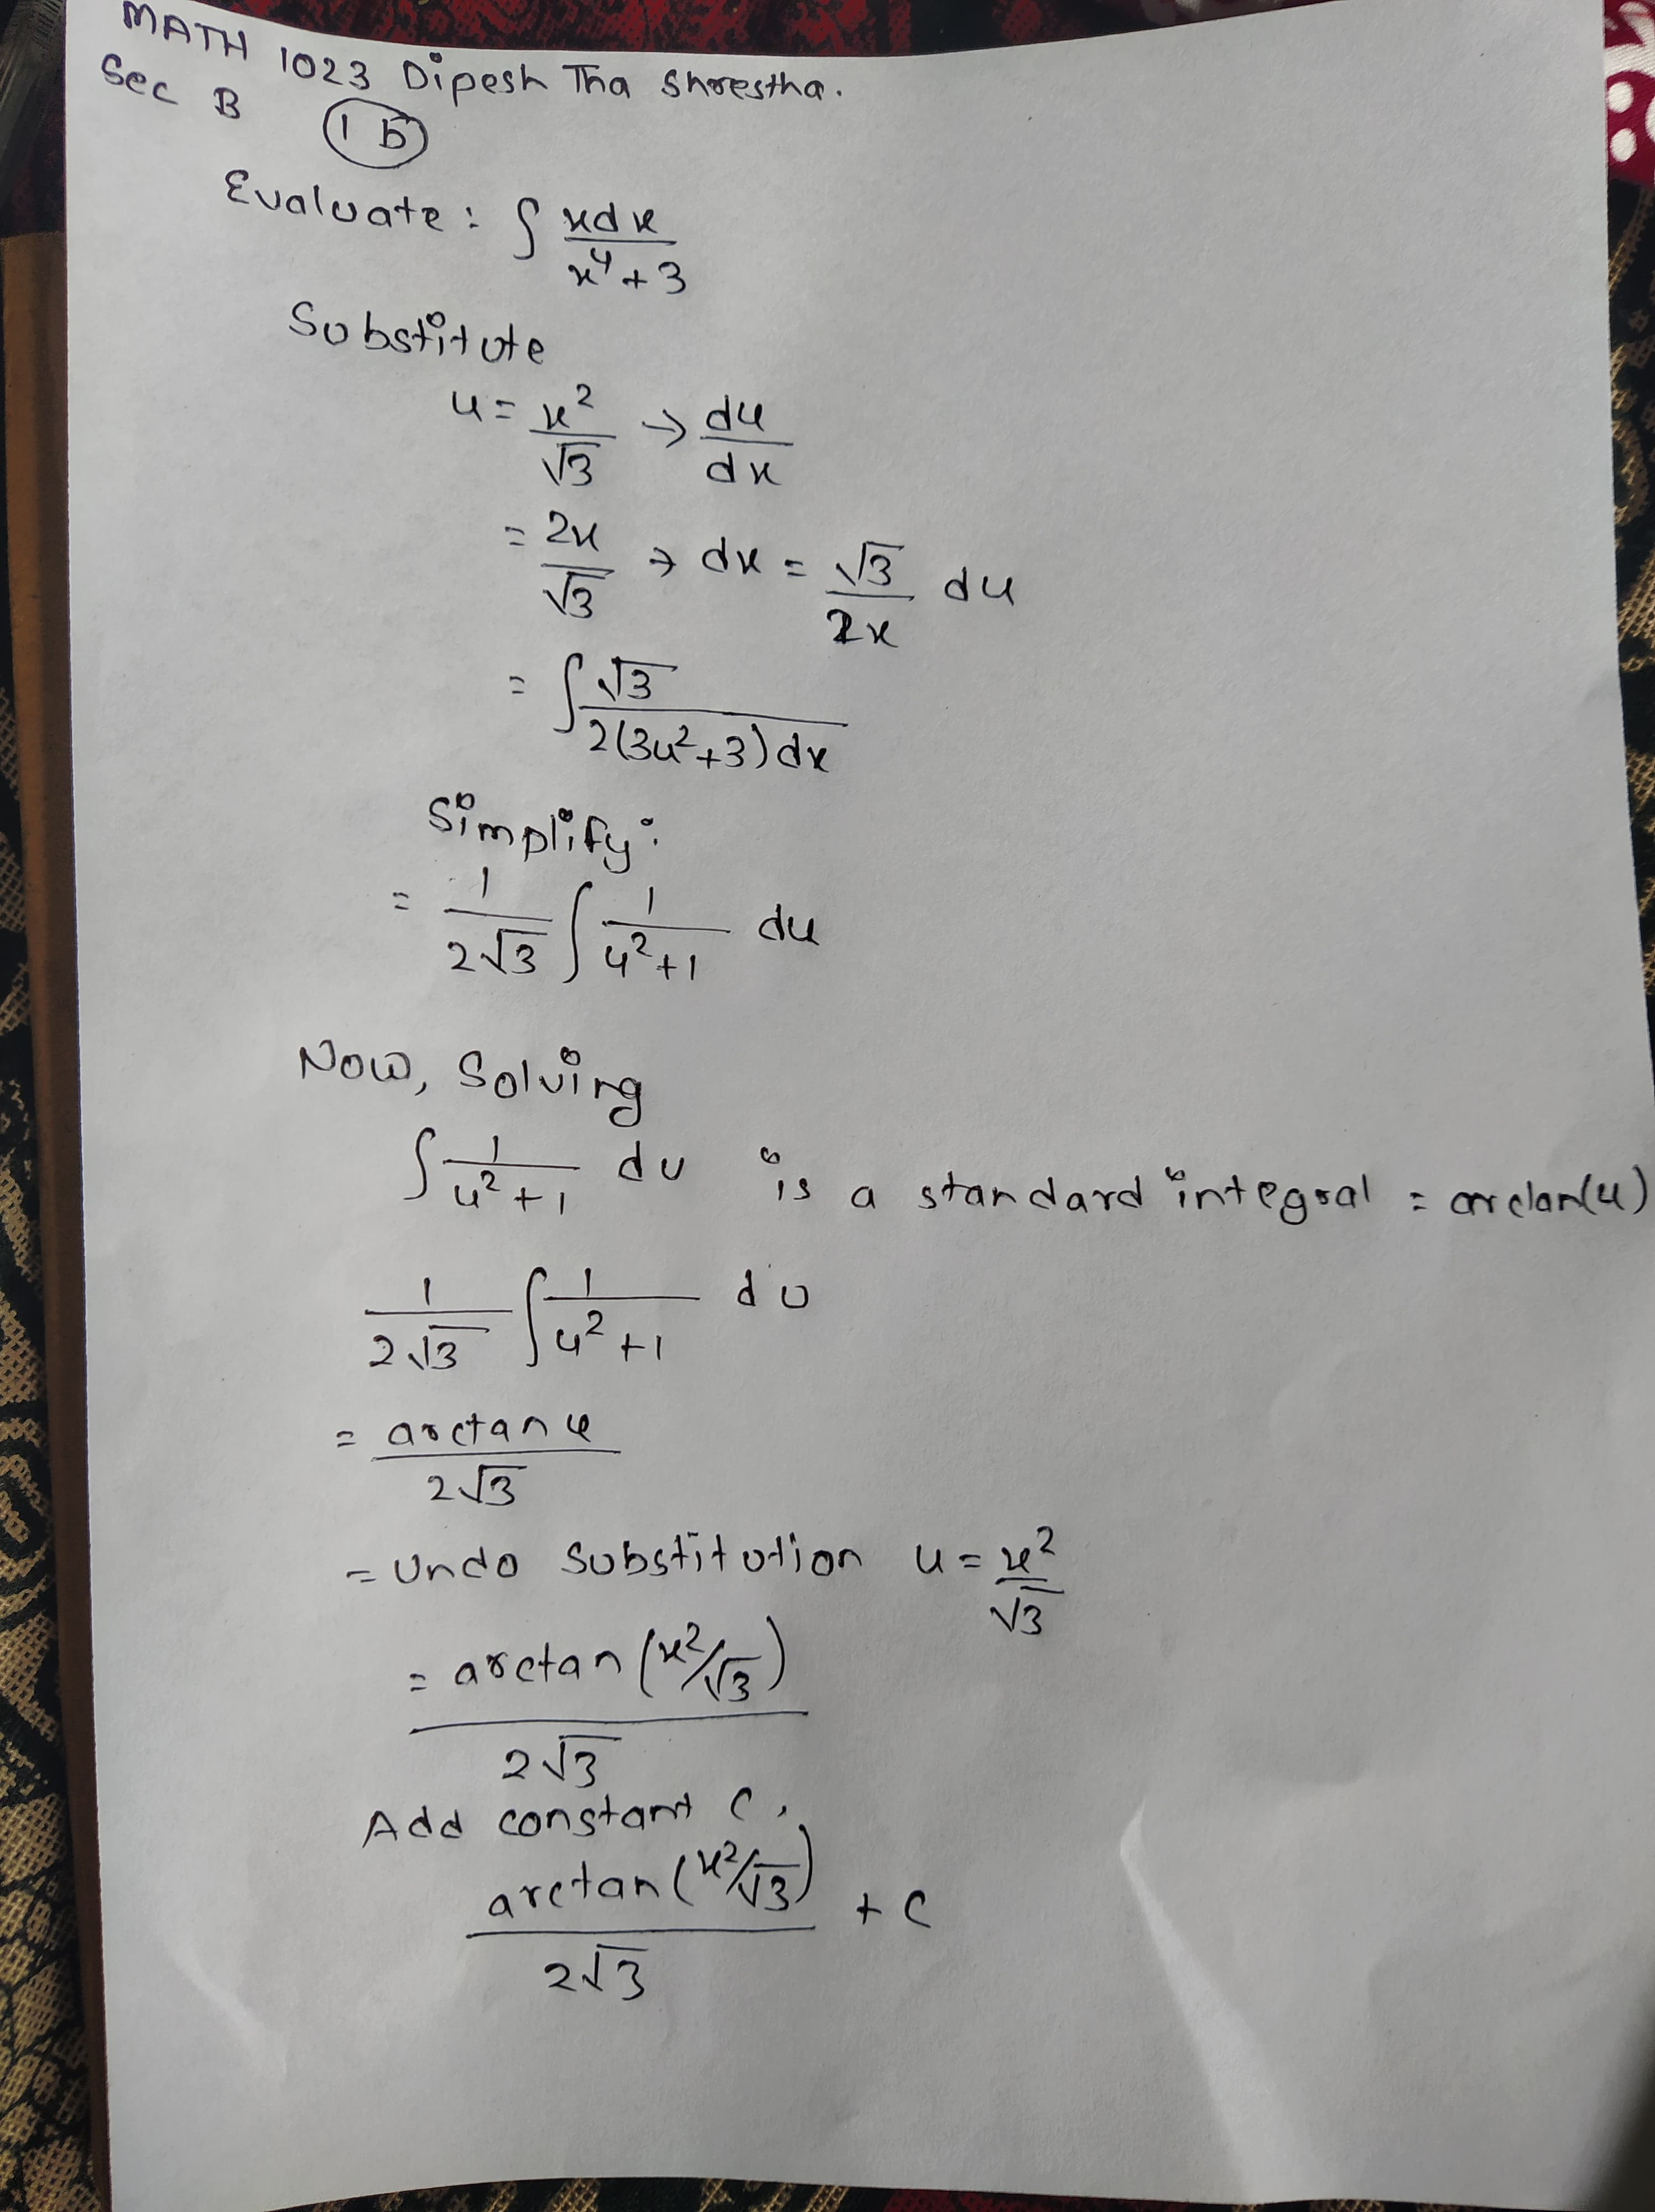 MATH 1023 Dipesh Tha Shrestha.
Sec B
1 b
Evaluate : ∫ xdx / x⁴+3
Substitute
u = x²/√3 → du/dx
= 2x/√3 → dx = √3/2x du
= ∫ √3 / 2(3u²+3)dx
Simplify:
= 1/2√3 ∫ 1/u²+1 du
Now, Solving
∫ 1/u²+1 du is a standard integral = arctan(u)
1/2√3 ∫ 1/u²+1 du
= arctan u / 2√3
= Undo substitution u = x²/√3
= arctan (x²/√3) / 2√3
Add constant C,
arctan (x²/√3) / 2√3 + C